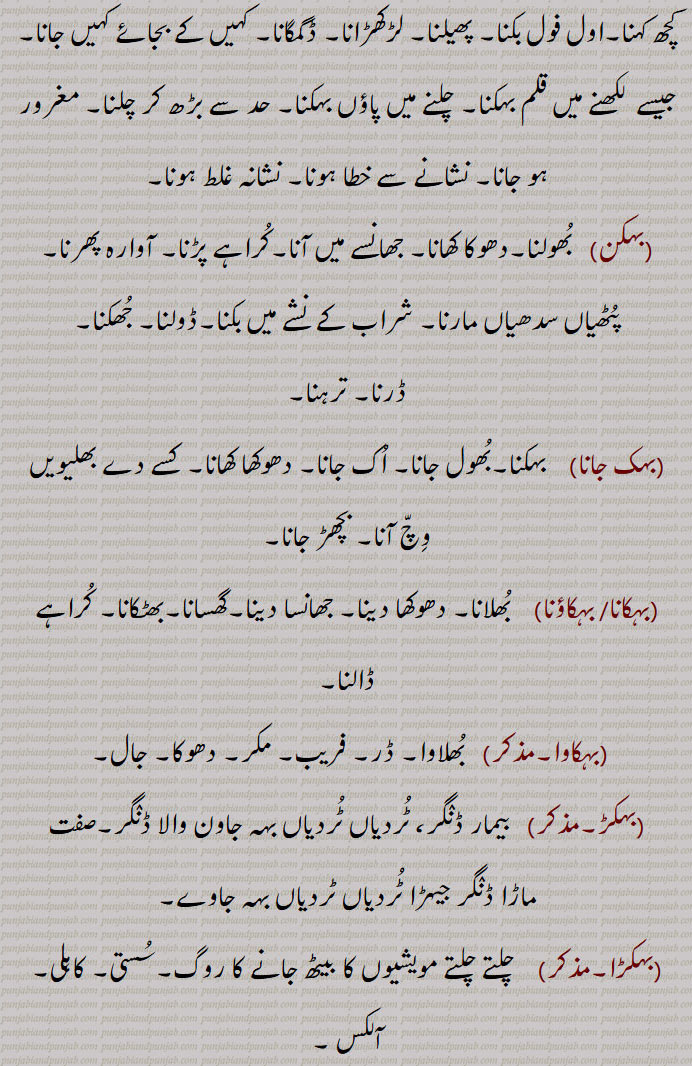 کچھ کہنا۔اول فول بکنا۔ پھیلنا۔ لڑکھڑانا۔ ڈگمگانا۔ کہیں کے بجائے کہیں جانا۔
جیسے لکھنے میں قلم بہکنا۔ چلنے میں پاؤں بہکنا۔ حد سے بڑھ کر چلنا۔ مغرور
ہو جانا۔ نشانے سے خطا ہونا۔ نشانہ غلط ہونا۔
(بہکن) بُھولنا۔دھوکا کھانا۔ جھانسے میں آنا۔کُراہے پڑنا۔ آوارہ پھرنا۔
پُٹھیاں سدھیاں مارنا۔ شراب کے نشے میں بکنا۔ڈولنا۔ جُھکنا۔
ڈرنا۔ ترہنا۔
(بہک جانا) بہکنا۔بُھول جانا۔ اُک جانا۔ دھوکھا کھانا۔ کسے دے بھلیویں
وِچّ آنا۔ بچھڑ جانا۔
(بہکانا/ بہکاؤنا) بُھلانا۔ دھوکھا دینا۔ جھانسا دینا۔گھسانا۔بھٹکانا۔ کُراہے
ڈالنا۔
(بہکاوا۔مذکر) بُھلاوا۔ ڈر۔ فریب۔ مکر۔ دھوکا۔ جال۔
(بہکڑ۔مذکر) بیمار ڈنگر، ٹُردیاں ٹُردیاں بہہ جاون والا ڈنگر۔صفت
ماڑا ڈنگر جیہڑا ٹُردیاں ٹردیاں بہہ جاوے۔
(بہکڑا۔مذکر) چلتے چلتے مویشیوں کا بیٹھ جانے کا روگ۔سُستی۔ کاہلی۔
آلکس ۔